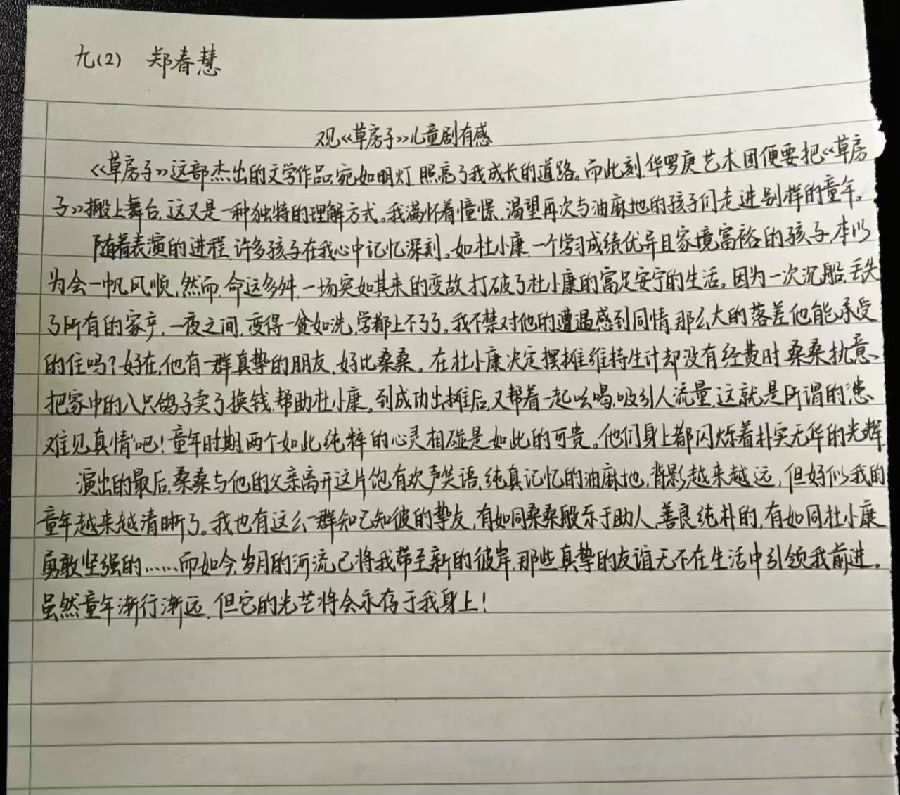 九(2) 郑春慧
观《草房子》儿童剧有感
《草房子》这部杰出的文学作品,宛如明灯,照亮了我成长的道路。而此刻,华罗庚艺术团便要把《草房
子》搬上舞台,这又是一种独特的理解方式。我满怀着憧憬,渴望再次与油麻地的孩子们走进别样的童年。
随着表演的进程,许多孩子在我心中记忆深刻。如杜小康,一个学习成绩优异且家境富裕的孩子,本以
为会一帆风顺,然而,命运多舛,一场突如其来的变故,打破了杜小康的富足安宁的生活。因为一次沉船,丢失
了所有的家产,一夜之间,变得一贫如洗,学都上不了了。我不禁对他的遭遇感到同情,那么大的落差他能承受
的住吗?好在,他有一群真挚的朋友,好比桑桑。在杜小康决定摆摊维持生计却没有经费时,桑桑执意
把家中的八只鸽子卖了换钱,帮助杜小康。到成功出摊后,又帮着一起吆喝,吸引人流量,这就是所谓的"患
难见真情"吧!童年时期两个如此纯粹的心灵相碰是如此的可贵。他们身上都闪烁着朴实无华的光辉。
演出的最后,桑桑与他的父亲离开这片饱有欢声笑语、纯真记忆的油麻地,背影越来越远,但好似我的
童年越来越清晰了。我也有这么一群知己知彼的挚友,有如同桑桑般乐于助人、善良纯朴的,有如同杜小康
勇敢坚强的……而如今,岁月的河流已将我带至新的彼岸,那些真挚的友谊无不在生活中引领我前进。
虽然童年渐行渐远,但它的光艺将会永存于我身上!